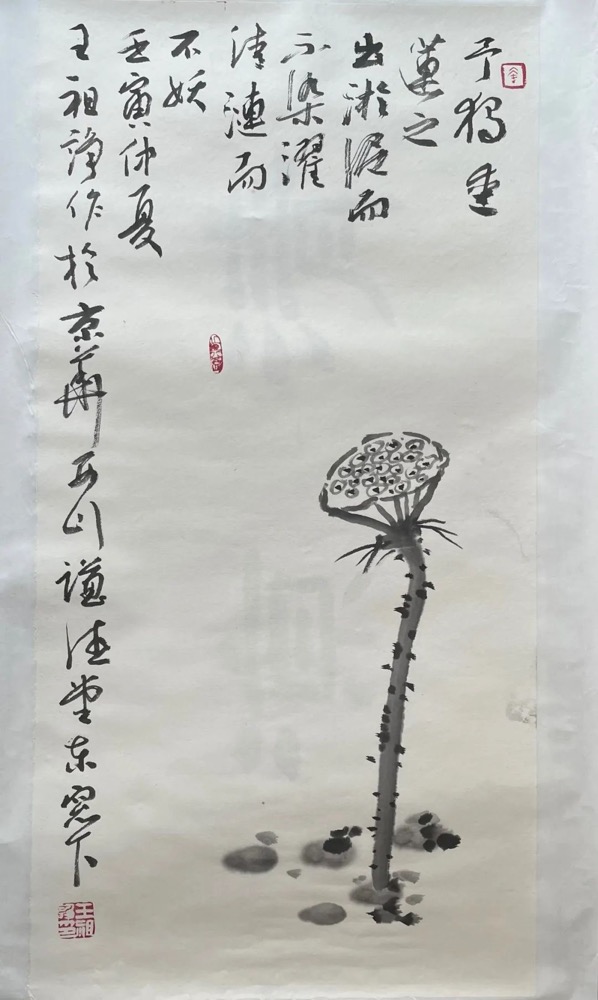 予独爱
莲之
出淤泥而
不染濯
清涟而
不妖
壬寅仲夏
王祖诤作於京華西山謙德堂東窓下